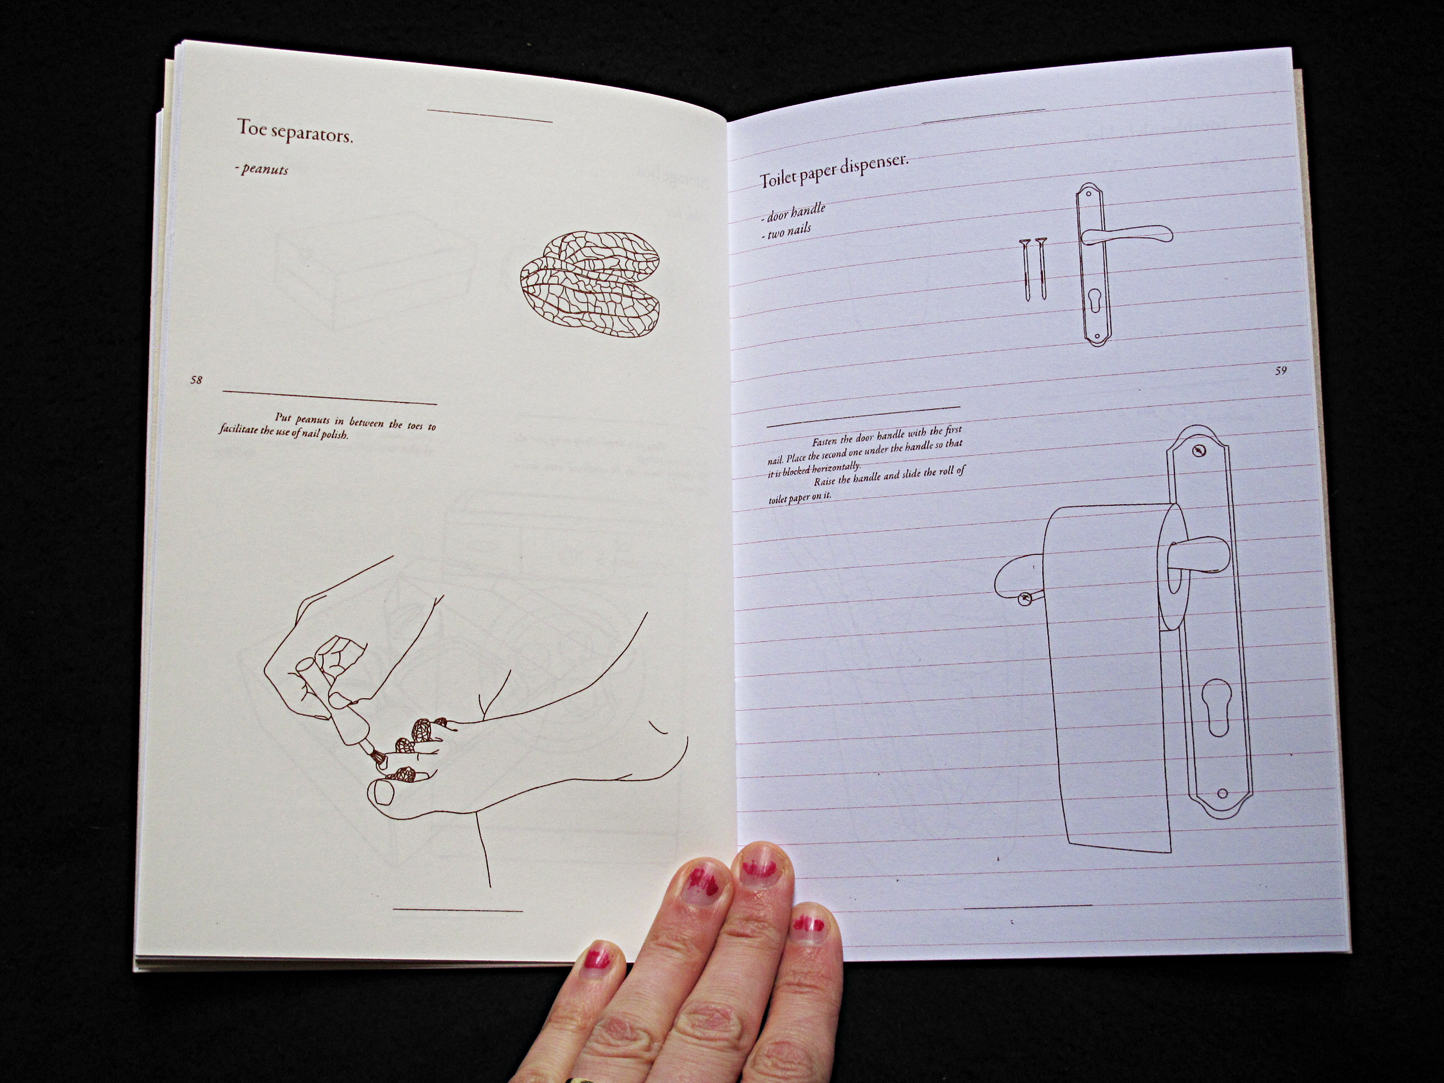 Toe separators.
- peanuts
58
Put peanuts in between the toes to
facilitate the use of nail polish.
Toilet paper dispenser.
- door handle
- two nails
59
Fasten the door handle with the first
nail. Place the second one under the handle so that
it is blocked horizontally.
Raise the handle and slide the roll of
toilet paper on it.